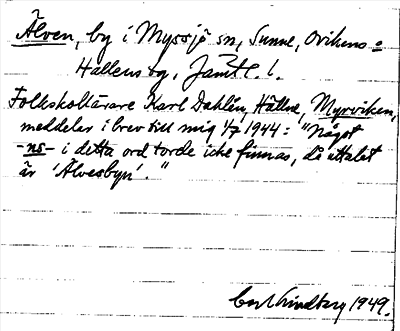 Älven, by i Myssjö sn, Sunne, Ovikens =
Hallens tg, Jämtl. l.
Folkskollärare Karl Dahlén, Hällne, Myrviken,
meddelar i brev till mig 1/7 1944: "Något
-ns- i detta ord torde icke finnas, då uttalet
är 'Älvesbyn'."
Carl Lindberg 1949.